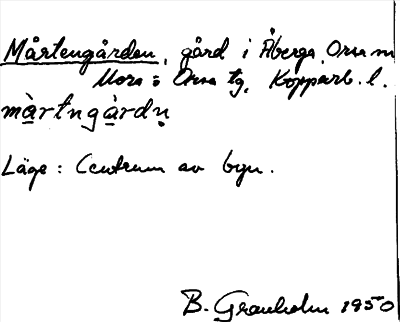 Mårtengården, gård i Åberga, Orsa sn
Mora o Orsa tg, Kopparb. l.
màrtngàrdṇ
Läge: Centrum av byn.
B. Granholm 1950